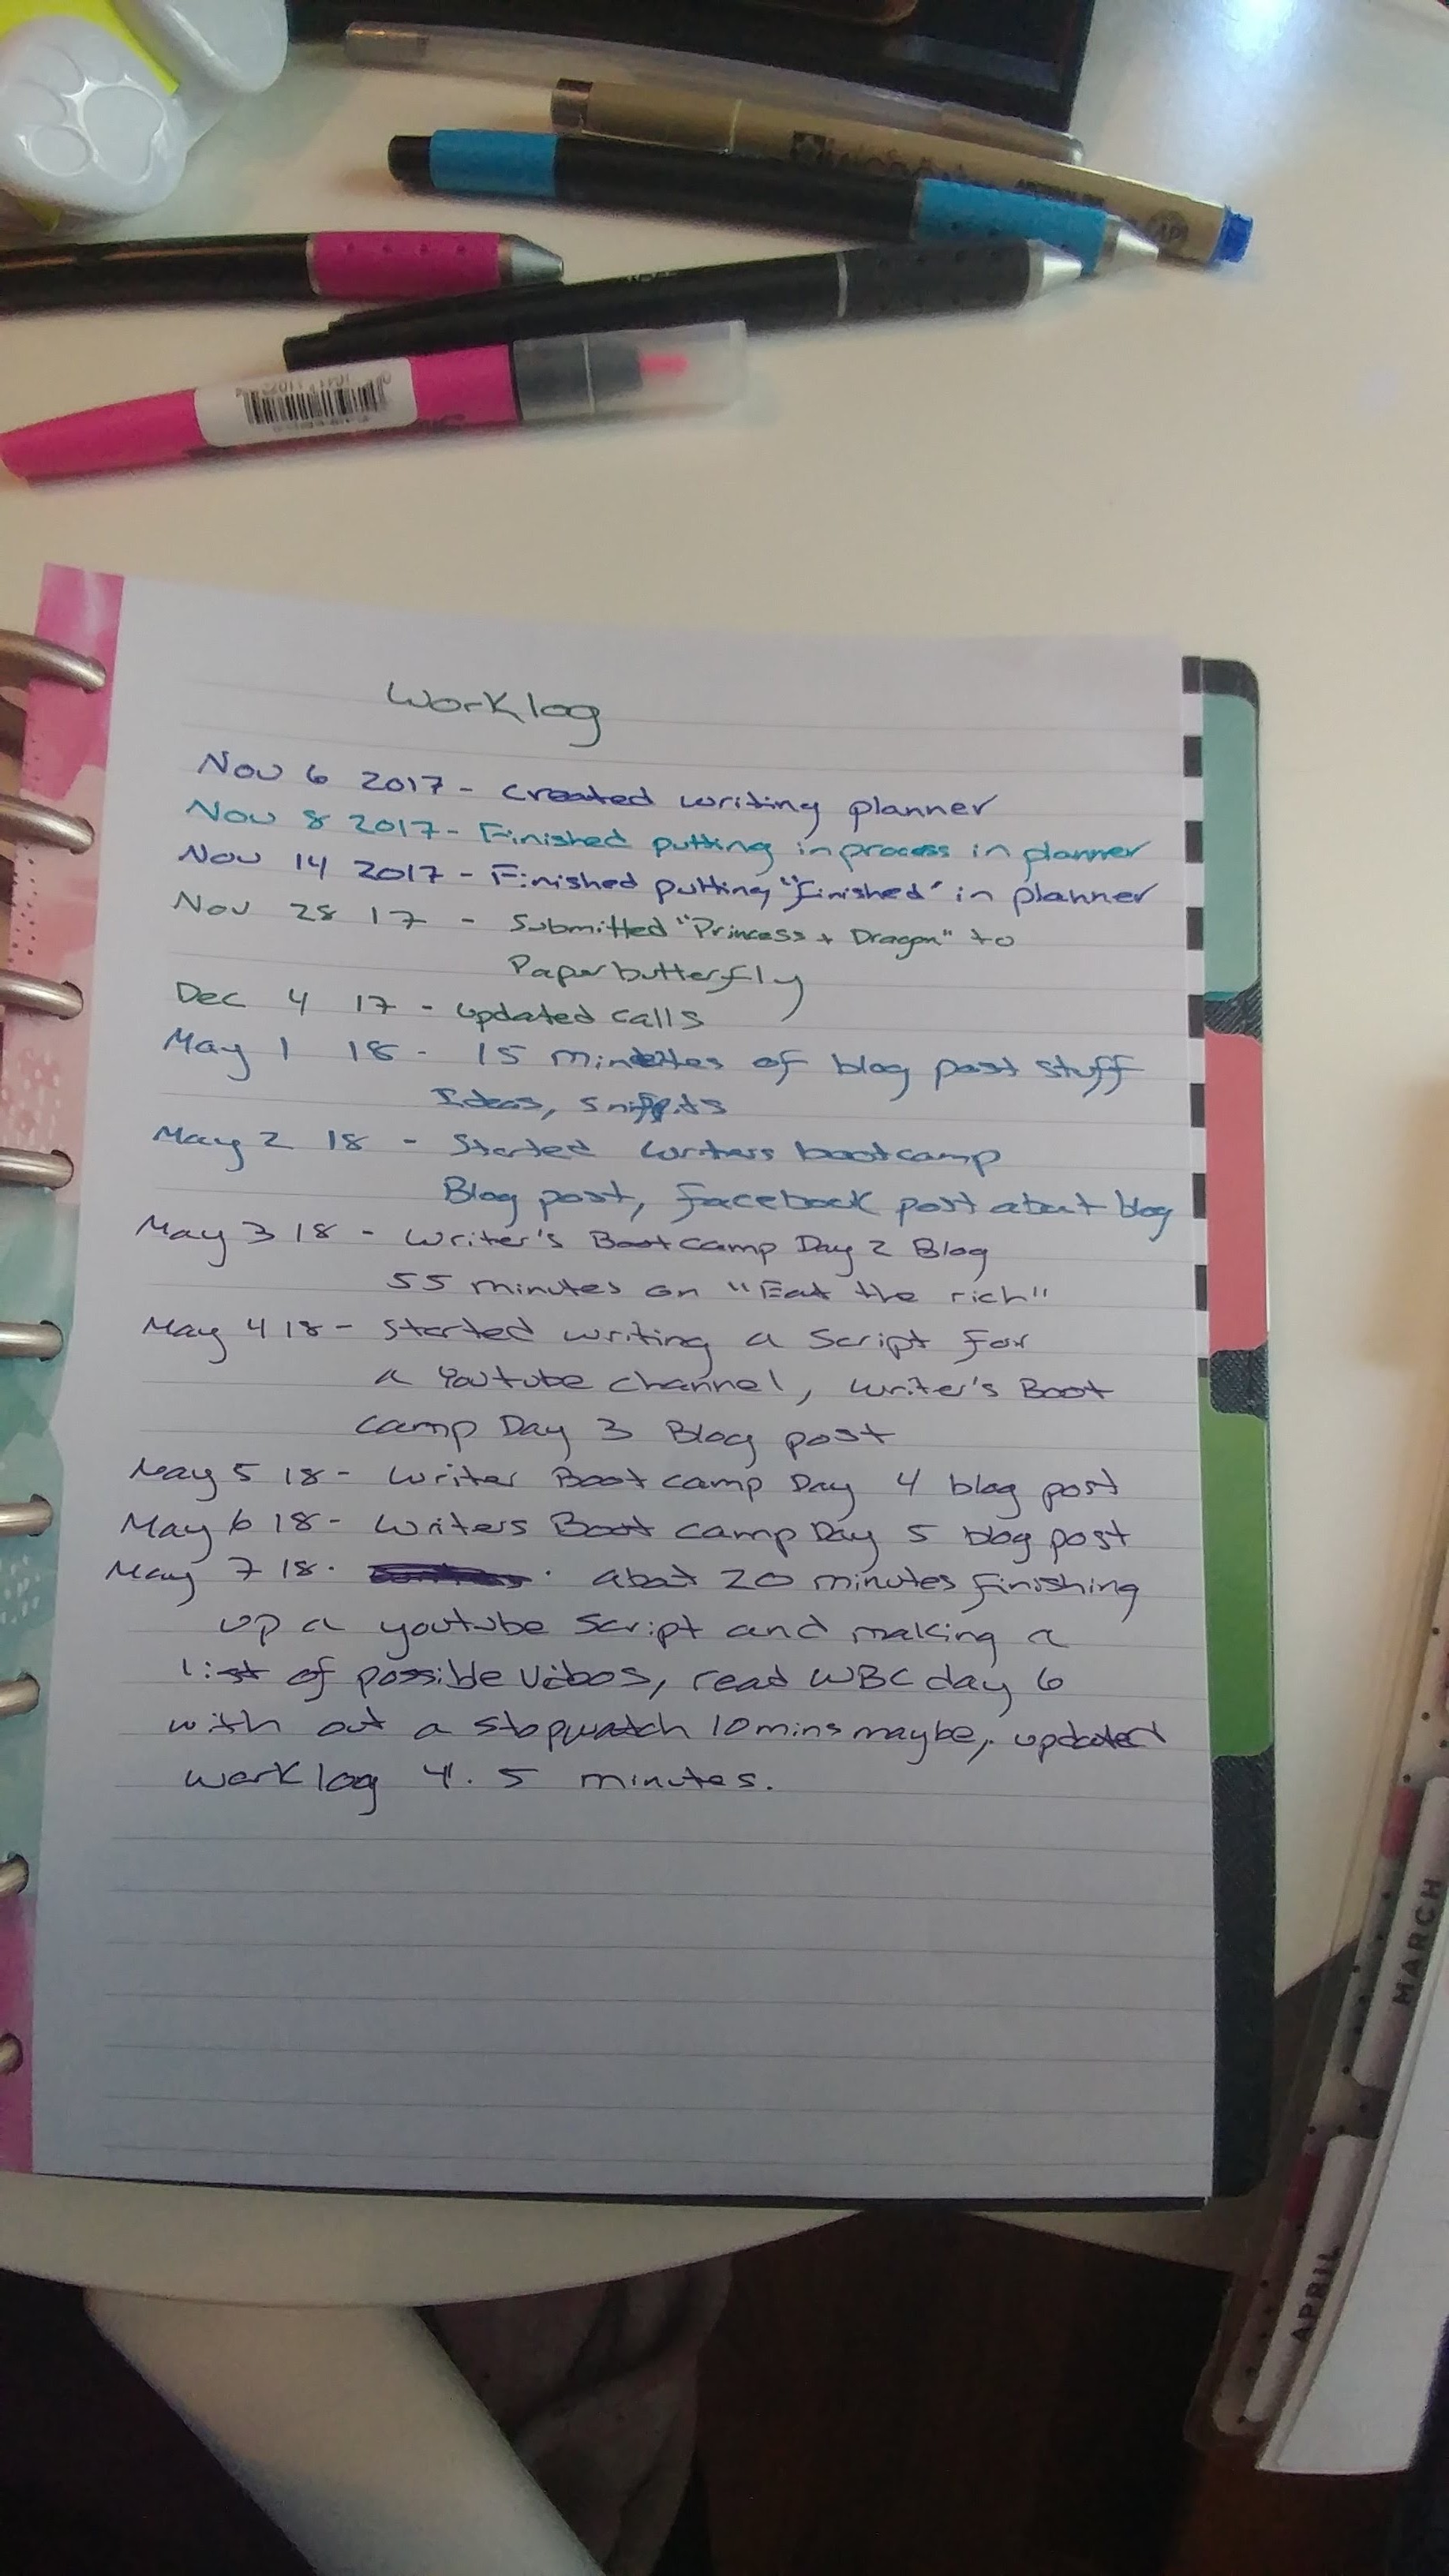 Worklog
Nov 6 2017 - Created writing planner
Nov 8 2017 - Finished putting inprocess in planner
Nov 14 2017 - Finished putting "finished" in planner
Nov 28 17 - Submitted "Princess + Dragon" to
Paperbutterfly
Dec 4 17 - updated calls
May 1 18 - 15 minutes of blog post stuff
Ideas, snippits
May 2 18 - Started writers bootcamp
Blog post, facebook post about blog
May 3 18 - Writer's Boot camp Day 2 Blog
55 minutes on "Eat the rich"
May 4 18 - Started writing a Script for
a Youtube channel, writer's Boot
camp Day 3 Blog post
May 5 18 - Writer Boot camp Day 4 blog post
May 6 18 - Writers Boot camp Day 5 blog post
May 7 18. about 20 minutes finishing
up a youtube script and making a
list of possible , read WBC day 6
with out a stopwatch 10mins maybe, updated
work log 4.5 minutes.
MARCH
APRIL